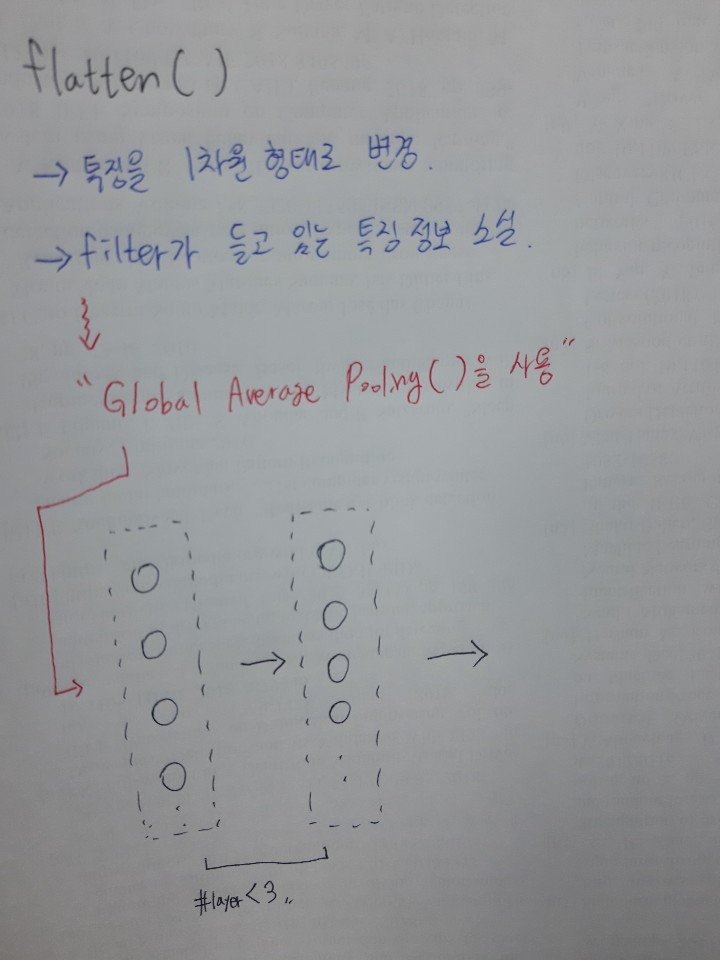 flatten( )
→ 특징을 1차원 형태로 변경.
→ filter가 들고 있는 특징 정보 소실.
"Global Average Pooling( )을 사용"
#layer<3..